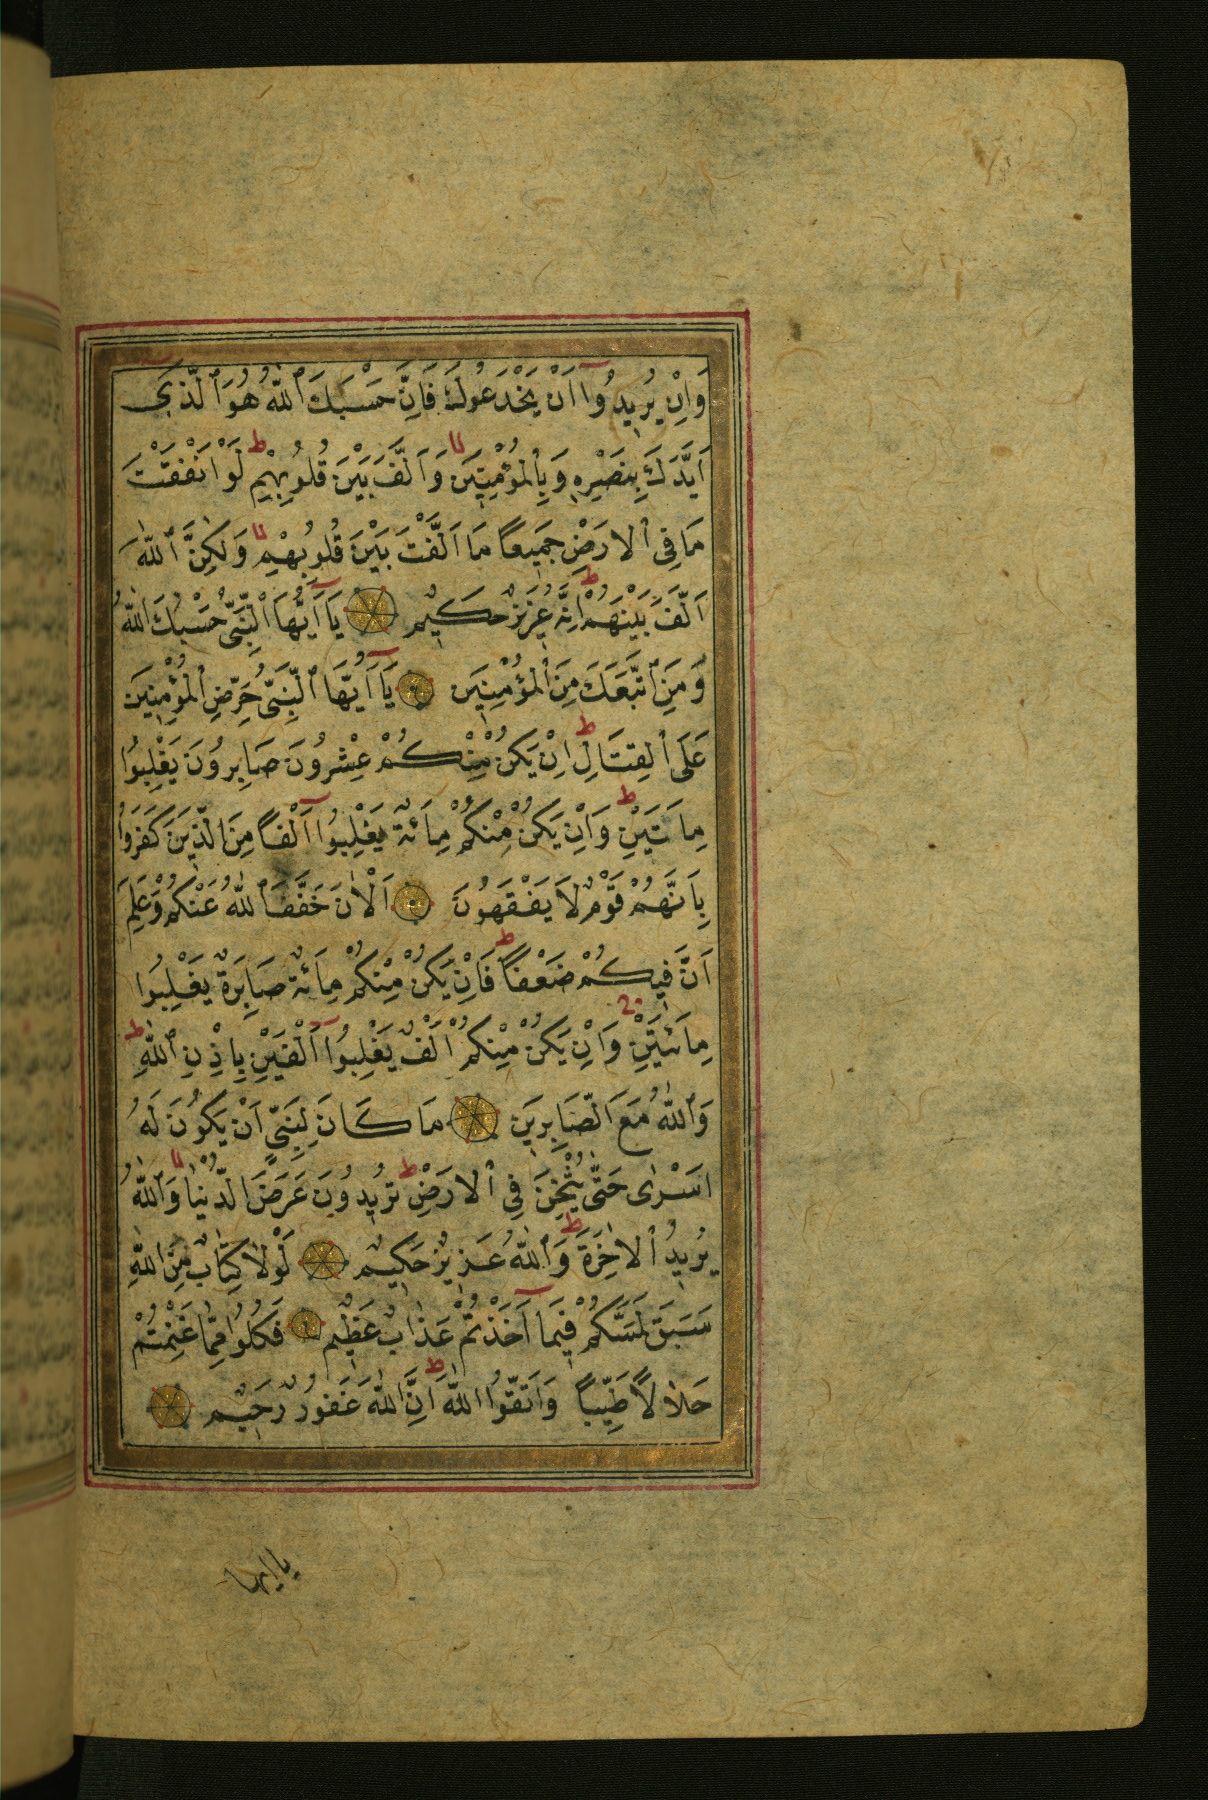 وَاِنْ يُرِيدُوٓا اَنْ يَخْدَعُوكَ فَاِنَّ حَسْبَكَ ٱللّٰهُ هُوَ ٱلَّذِىٓ
اَيَّدَكَ بِنَصْرِهٖ وَبِالْمُؤْمِنِينَ لا وَاَلَّفَ بَيْنَ قُلُوبِهِمْ ط لَوْ اَنْفَقْتَ
مَا فِى ٱلْاَرْضِ جَمِيعًا مَا اَلَّفْتَ بَيْنَ قُلُوبِهِمْ لا وَلٰكِنَّ ٱللّٰهَ
اَلَّفَ بَيْنَهُمْ ط اِنَّهُ عَزِيزٌ حَكِيمٌ يَآ اَيُّهَا ٱلنَّبِىُّ حَسْبُكَ اللّٰهُ
وَمَنِ ٱتَّبَعَكَ مِنَ ٱلْمُؤْمِنِينَ يَآ اَيُّهَا ٱلنَّبِىُّ حَرِّضِ ٱلْمُؤْمِنِينَ
عَلَى ٱلْقِتَالِ ط اِنْ يَكُنْ مِنْكُمْ عِشْرُونَ صَابِرُونَ يَغْلِبُوا
مِاَتَيْنِ ط وَاِنْ يَكُنْ مِنْكُمْ مِاَئَةٌ يَغْلِبُوٓا اَلْفًا مِنَ الَّذِينَ كَفَرُوا
بِاَنَّهُمْ قَوْمٌ لَا يَفْقَهُونَ اَلْاٰنَ خَفَّفَ ٱللّٰهُ عَنْكُمْ وَعَلِمَ
اَنَّ فِيكُمْ ضَعْفًا ط فَاِنْ يَكُنْ مِنْكُمْ مِاَئَةٌ صَابِرَةٌ يَغْلِبُوا
مِاَئَتَيْنِ ج وَاِنْ يَكُنْ مِنْكُمْ اَلْفٌ يَغْلِبُوٓا اَلْفَيْنِ بِاِذْنِ ٱللّٰهِ ط
وَٱللّٰهُ مَعَ ٱلصَّابِرِينَ مَا كَانَ لِنَبِىٍّ اَنْ يَكُونَ لَهُ
اَسْرٰى حَتّٰى يُثْخِنَ فِى ٱلْاَرْضِ ط تُرِيدُونَ عَرَضَ الدُّنْيَا لا وَٱللّٰهُ
يُرِيدُ ٱلْاٰخِرَةَ ط وَٱللّٰهُ عَزِيزٌ حَكِيمٌ لَوْلَا كِتَابٌ مِنَ اللّٰهِ
سَبَقَ لَمَسَّكُمْ فِيمَآ اَخَذْتُمْ عَذَابٌ عَظِيمٌ فَكُلُوا مِمَّا غَنِمْتُمْ
حَلَالًا طَيِّبًا وَاتَّقُوا اللّٰهَ ط اِنَّ اللّٰهَ غَفُورٌ رَحِيمٌ
يا ايها